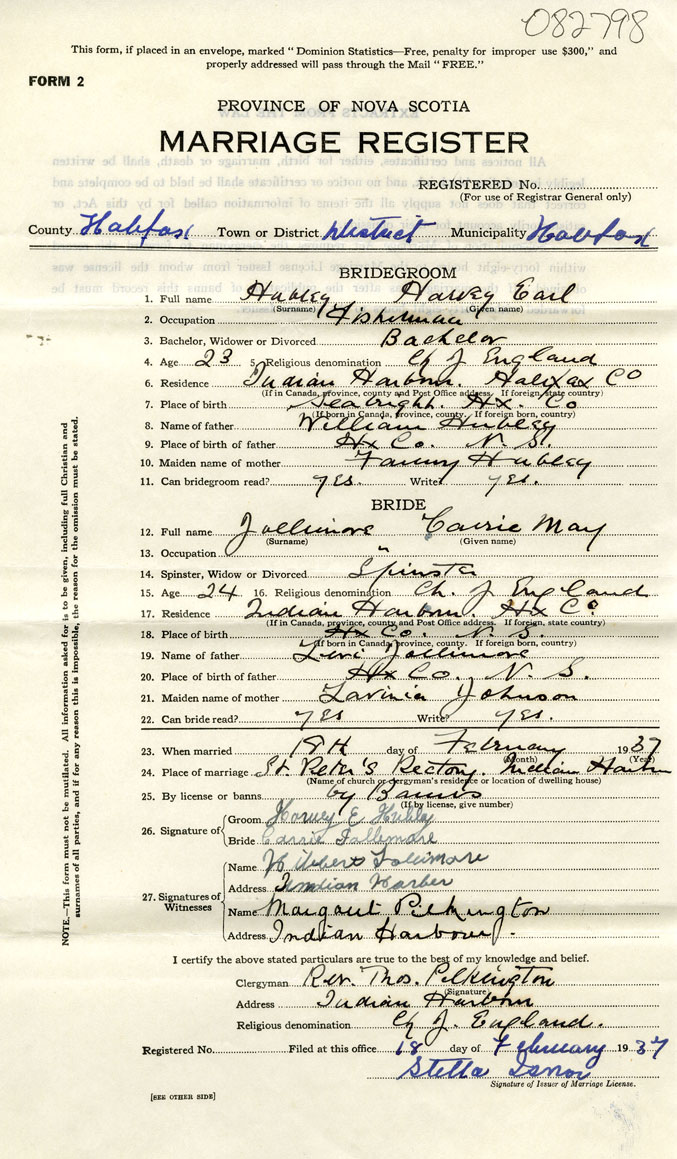 082798
This form, if placed in an envelope, marked "Dominion Statistics—Free, penalty for improper use $300," and
properly addressed will pass through the Mail "FREE."
FORM 2
PROVINCE OF NOVA SCOTIA
MARRIAGE REGISTER
REGISTERED No.
(For use of Registrar General only)
County Halifax Town or District District Municipality Halifax
BRIDEGROOM
1. Full name Hubley Harvey Earl
(Surname) (Given name)
2. Occupation Fisherman
3. Bachelor, Widower or Divorced Bachelor
4. Age 23 5. Religious denomination Ch of England
6. Residence Indian Harbour. Halifax Co
(If in Canada, province, county and Post Office address. If foreign, state country)
7. Place of birth Seabright. Hx. Co
(If born in Canada, province, county. If foreign born, country)
8. Name of father William Hubley
9. Place of birth of father Hx Co. N. S.
10. Maiden name of mother Fanny Hubley
11. Can bridegroom read? yes. Write? yes.
BRIDE
12. Full name Jollimore Carrie May
(Surname) (Given name)
13. Occupation "
14. Spinster, Widow or Divorced Spinster
15. Age 24 16. Religious denomination Ch. of England
17. Residence Indian Harbour. Hx Co
(If in Canada, province, county and Post Office address. If foreign, state country)
18. Place of birth Hx Co. N. S.
(If born in Canada, province, county. If foreign born, country)
19. Name of father Levi Jollimore
20. Place of birth of father Hx Co. N. S.
21. Maiden name of mother Lavinia Johnson
22. Can bride read? yes Write? yes.
23. When married 18th day of February 1937
(Month) (Year)
24. Place of marriage St. Peter's Rectory. Indian Harbr
(Name of church or clergyman's residence or location of dwelling house)
25. By license or banns by Banns
(If by license, give number)
26. Signature of Groom Harvey E Hubley
Bride Carrie Jollimore
27. Signatures of Witnesses
Name Wilbert Jollimore
Address Indian Harber
Name Margaret Pilkington
Address Indian Harbour.
I certify the above stated particulars are true to the best of my knowledge and belief.
Clergyman Rev. Thos. Pilkington
(Signature)
Address Indian Harbour
Religious denomination Ch of. England.
Registered No. Filed at this office 18 day of February 1937
Stella
Signature of Issuer of Marriage License.
[SEE OTHER SIDE]
NOTE.—This form must not be mutilated. All information asked for is to be given, including full Christian and
surnames of all parties, and if for any reason this is impossible, the reason for the omission must be stated.